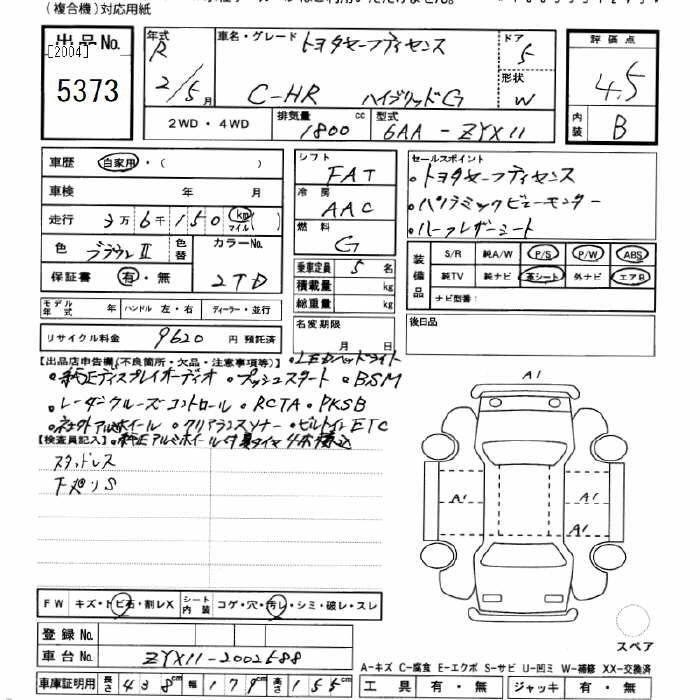 (複合機)対応用紙
出品No.
[2004]
5373
年式 R 2/5 月
車名・グレード トヨタセーフティセンス
C-HR ハイブリッドG
ドア 5
形状 W
評価点 4.5
内装 B
2WD・4WD
排気量 1800 cc
型式 6AA-ZYX11
車歴 自家用・( )
車検 年 月
走行 3万6千150 km マイル ( )
色 ブラウンII 色替
カラーNo. 2TD
保証書 有・無
モデル年式 年 ハンドル 左・右 ディーラー・並行
リサイクル料金 9620 円 預託済
シフト FAT
冷房 AAC
燃料 G
乗車定員 5名
積載量 kg
総重量 kg
名変期限 月 日
セールスポイント
・トヨタセーフティセンス
・パノラミックビューモニター
・ハーフレザーシート
装備品
S/R 純A/W P/S P/W ABS
純TV 純ナビ 革シート 外ナビ エアB
ナビ型番:
後日品
【出品店申告欄(不良箇所・欠品・注意事項等)】 ・LEDヘッドライト
・純正ディスプレイオーディオ ・プッシュスタート ・BSM
・レーダークルーズコントロール ・RCTA ・PKSB
・クリアランスソナー ・ビルトインETC
【検査員記入】 ・純正アルミホイール付夏タイヤ4本積込
スタッドレス
下廻りS
A1
A1
A1
A1
スペア
FW キズ・トビ石・割レX
シート内装 コゲ・穴・汚レ・シミ・破レ・スレ
登録No.
車台No. ZYX11-2002588
車庫証明用 長さ 438cm 幅 179cm 高さ 155cm
A-キズ C-腐食 E-エクボ S-サビ U-凹ミ W-補修 XX-交換済
工具 有・無 ジャッキ 有・無